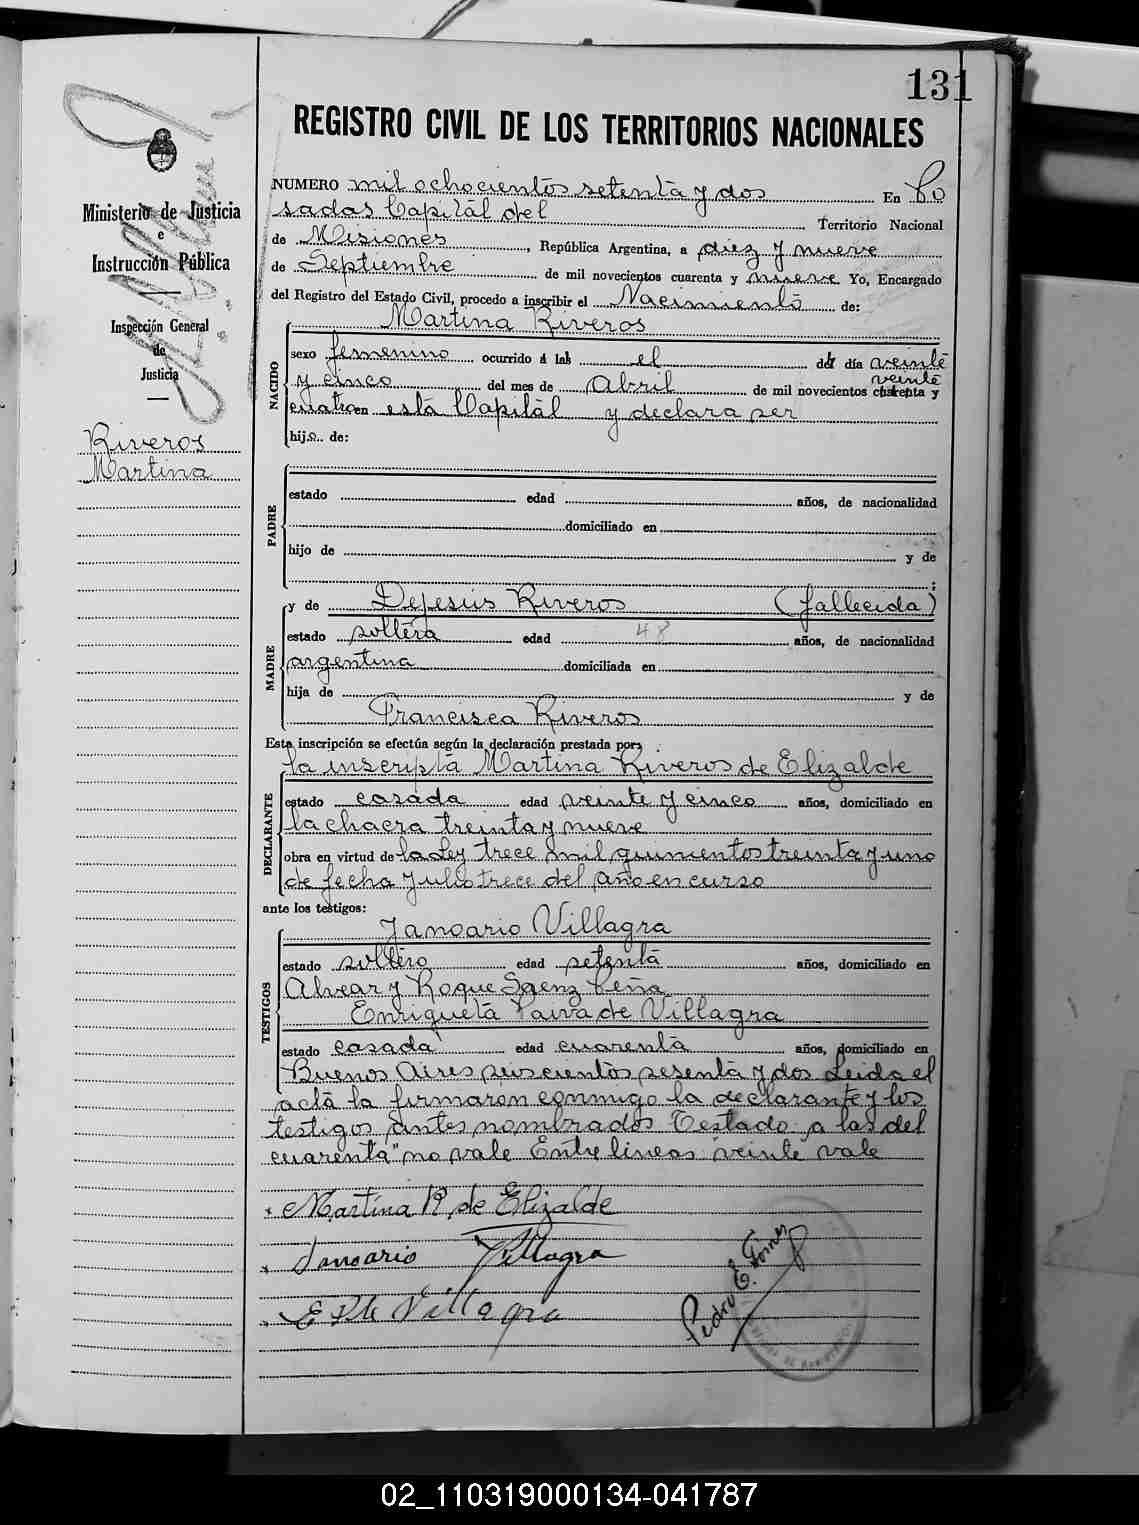 131
REGISTRO CIVIL DE LOS TERRITORIOS NACIONALES
Ministerio de Justicia
e
Instrucción Pública
Inspección General
de
Justicia
Riveros
Martina
NUMERO mil ochocientos setenta y dos En Po
sadas Capital del Territorio Nacional
de Misiones, República Argentina, a diez y nueve
de Septiembre de mil novecientos cuarenta y nueve Yo, Encargado
del Registro del Estado Civil, procedo a inscribir el Nacimiento de:
Martina Riveros
NACIDO
sexo femenino ocurrido á las el del día veinte
y cinco del mes de Abril de mil novecientos cuarenta y
veinte
cuatro en esta Capital y declara ser
hija de:
PADRE
estado edad años, de nacionalidad
domiciliado en
hijo de y de
;
MADRE
y de Dejesús Riveros (fallecida)
estado soltera edad 48 años, de nacionalidad
argentina domiciliada en
hija de y de
Francisca Riveros
Esta inscripción se efectúa según la declaración prestada por:
DECLARANTE
la inscripta Martina Riveros de Elizalde
estado casada edad veinte y cinco años, domiciliado en
la chacra treinta y nueve
obra en virtud de la Ley trece mil quinientos treinta y uno
de fecha Julio trece del año en curso
ante los testigos:
TESTIGOS
Janoario Villagra
estado soltero edad setenta años, domiciliado en
Alvear y Roque Saenz Peña
Enriqueta Paiva de Villagra
estado casada edad cuarenta años, domiciliado en
Buenos Aires seiscientos sesenta y dos Leida el
acta la firmaron conmigo la declarante y los
testigos antes nombrados Testado: a las del
cuarenta" no vale Entre lineas: veinte vale
Martina R. de Elizalde
Janoario Villagra
E P de Villagra
Pedro E.
02_110319000134-041787